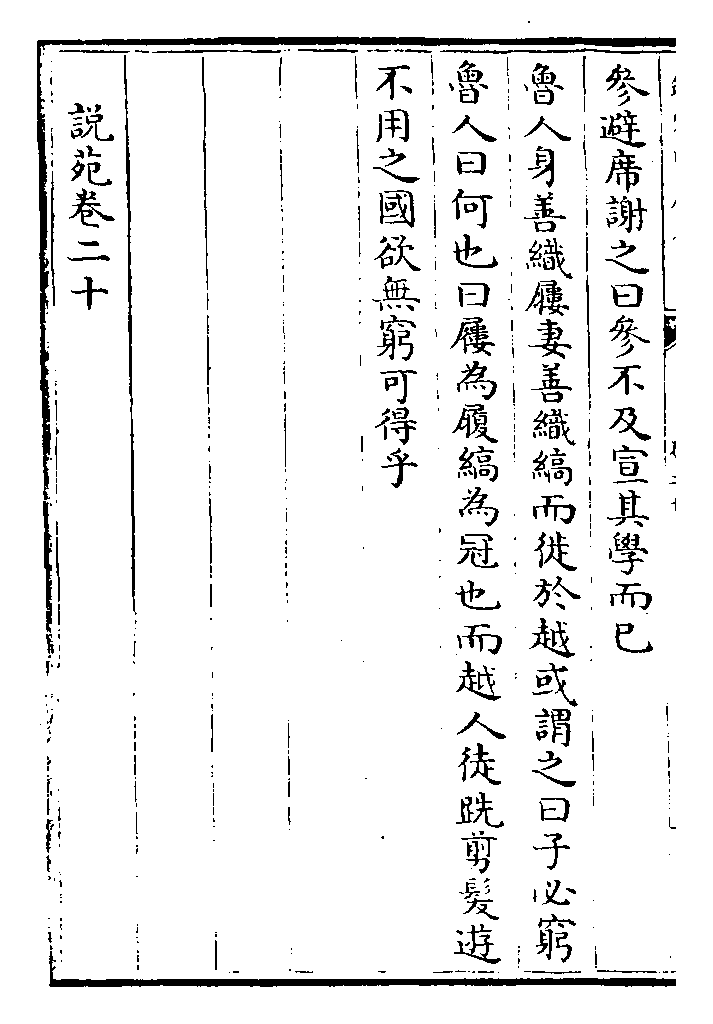 參避席謝之曰參不及宣其學而已
魯人身善織屨妻善織縞而徙於越或謂之曰子必窮
魯人曰何也曰屨為履縞為冠也而越人徒跣剪髮遊
不用之國欲無窮可得乎
說苑卷二十